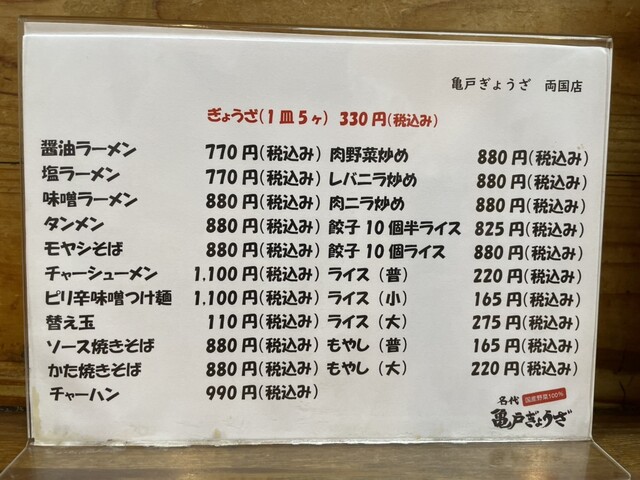 亀戸ぎょうざ 両国店
ぎょうざ(1皿5ヶ) 330円(税込み)
醤油ラーメン 770円(税込み) 肉野菜炒め 880円(税込み)
塩ラーメン 770円(税込み) レバニラ炒め 880円(税込み)
味噌ラーメン 880円(税込み) 肉ニラ炒め 880円(税込み)
タンメン 880円(税込み) 餃子10個半ライス 825円(税込み)
モヤシそば 880円(税込み) 餃子10個ライス 880円(税込み)
チャーシューメン 1.100円(税込み) ライス(普) 220円(税込み)
ピリ辛味噌つけ麺 1.100円(税込み) ライス(小) 165円(税込み)
替え玉 110円(税込み) ライス(大) 275円(税込み)
ソース焼きそば 880円(税込み) もやし(普) 165円(税込み)
かた焼きそば 880円(税込み) もやし(大) 220円(税込み)
チャーハン 990円(税込み)
名代 国産野菜100%
亀戸ぎょうざ